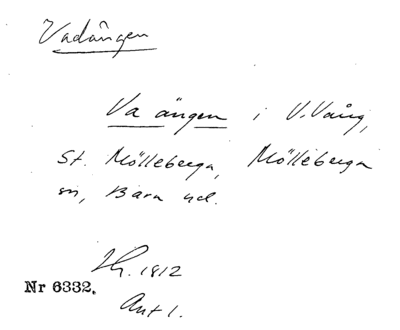 Vadängen
Va ängen i V. Vång,
St. Mölleberga, Mölleberga
sn, Bara hd.
Lh. 1812
Nr 6332.
Akt 1.